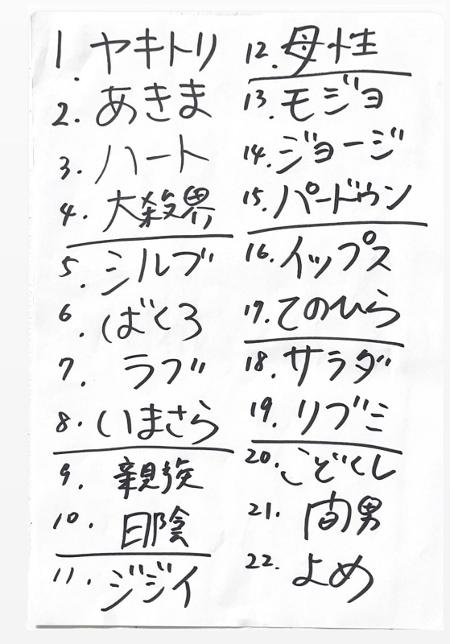 1. ヤキトリ
2. あきま
3. ハート
4. 大殺界
5. シルブ
6. ばくろ
7. ラブ
8. いまさら
9. 親族
10. 日陰
11. ジジイ
12. 母性
13. モジョ
14. ジョージ
15. パードゥン
16. イップス
17. てのひら
18. サラダ
19. リブミ
20. こどくし
21. 間男
22. よめ